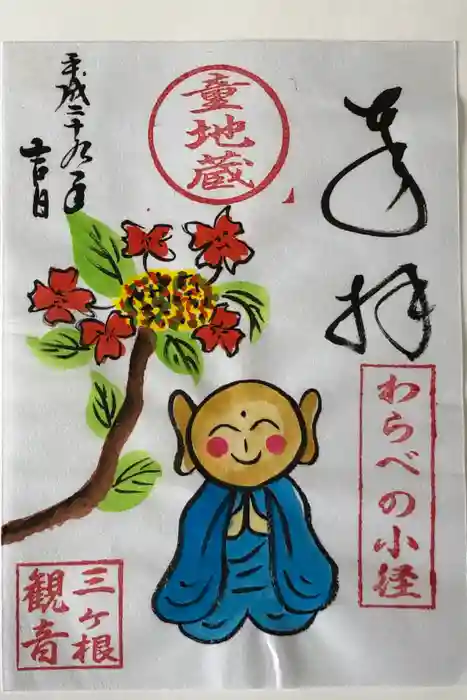 奉
拝
わらべの小径
童地蔵
平成二十九年
吉日
三ヶ根
観音